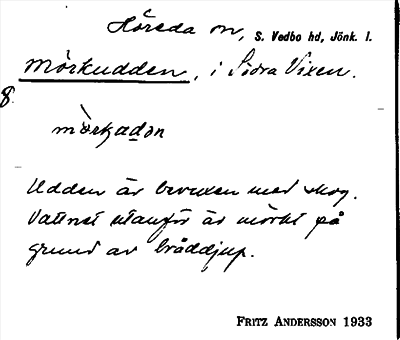 Höreda sn, S. Vedbo hd, Jönk. l.
Mörkudden, i Södra Vixen.
8
mö̀rkadən
Udden är bevuxen med skog.
Vattnet utanför är mörkt på
grund av bråddjup.
FRITZ ANDERSSON 1933